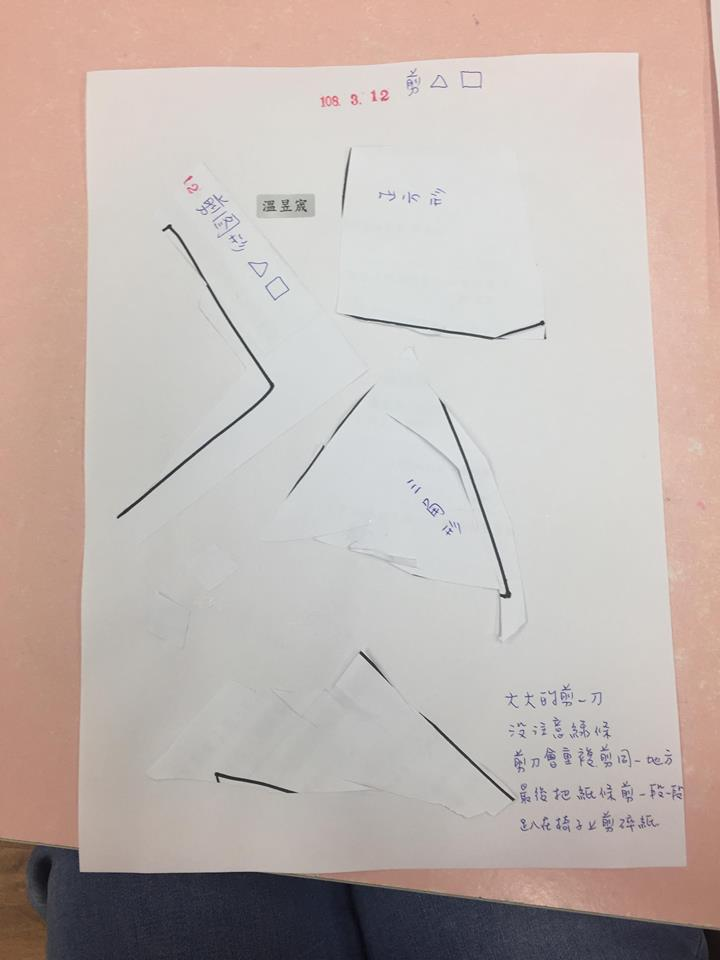 108. 3. 12 剪△□
12
剪圖形△□
溫昱宬
正方形
三角形
大大的剪一刀
沒注意線條
剪刀會重複剪同一地方
最後把紙條剪一段一段
趴在椅子上剪碎紙